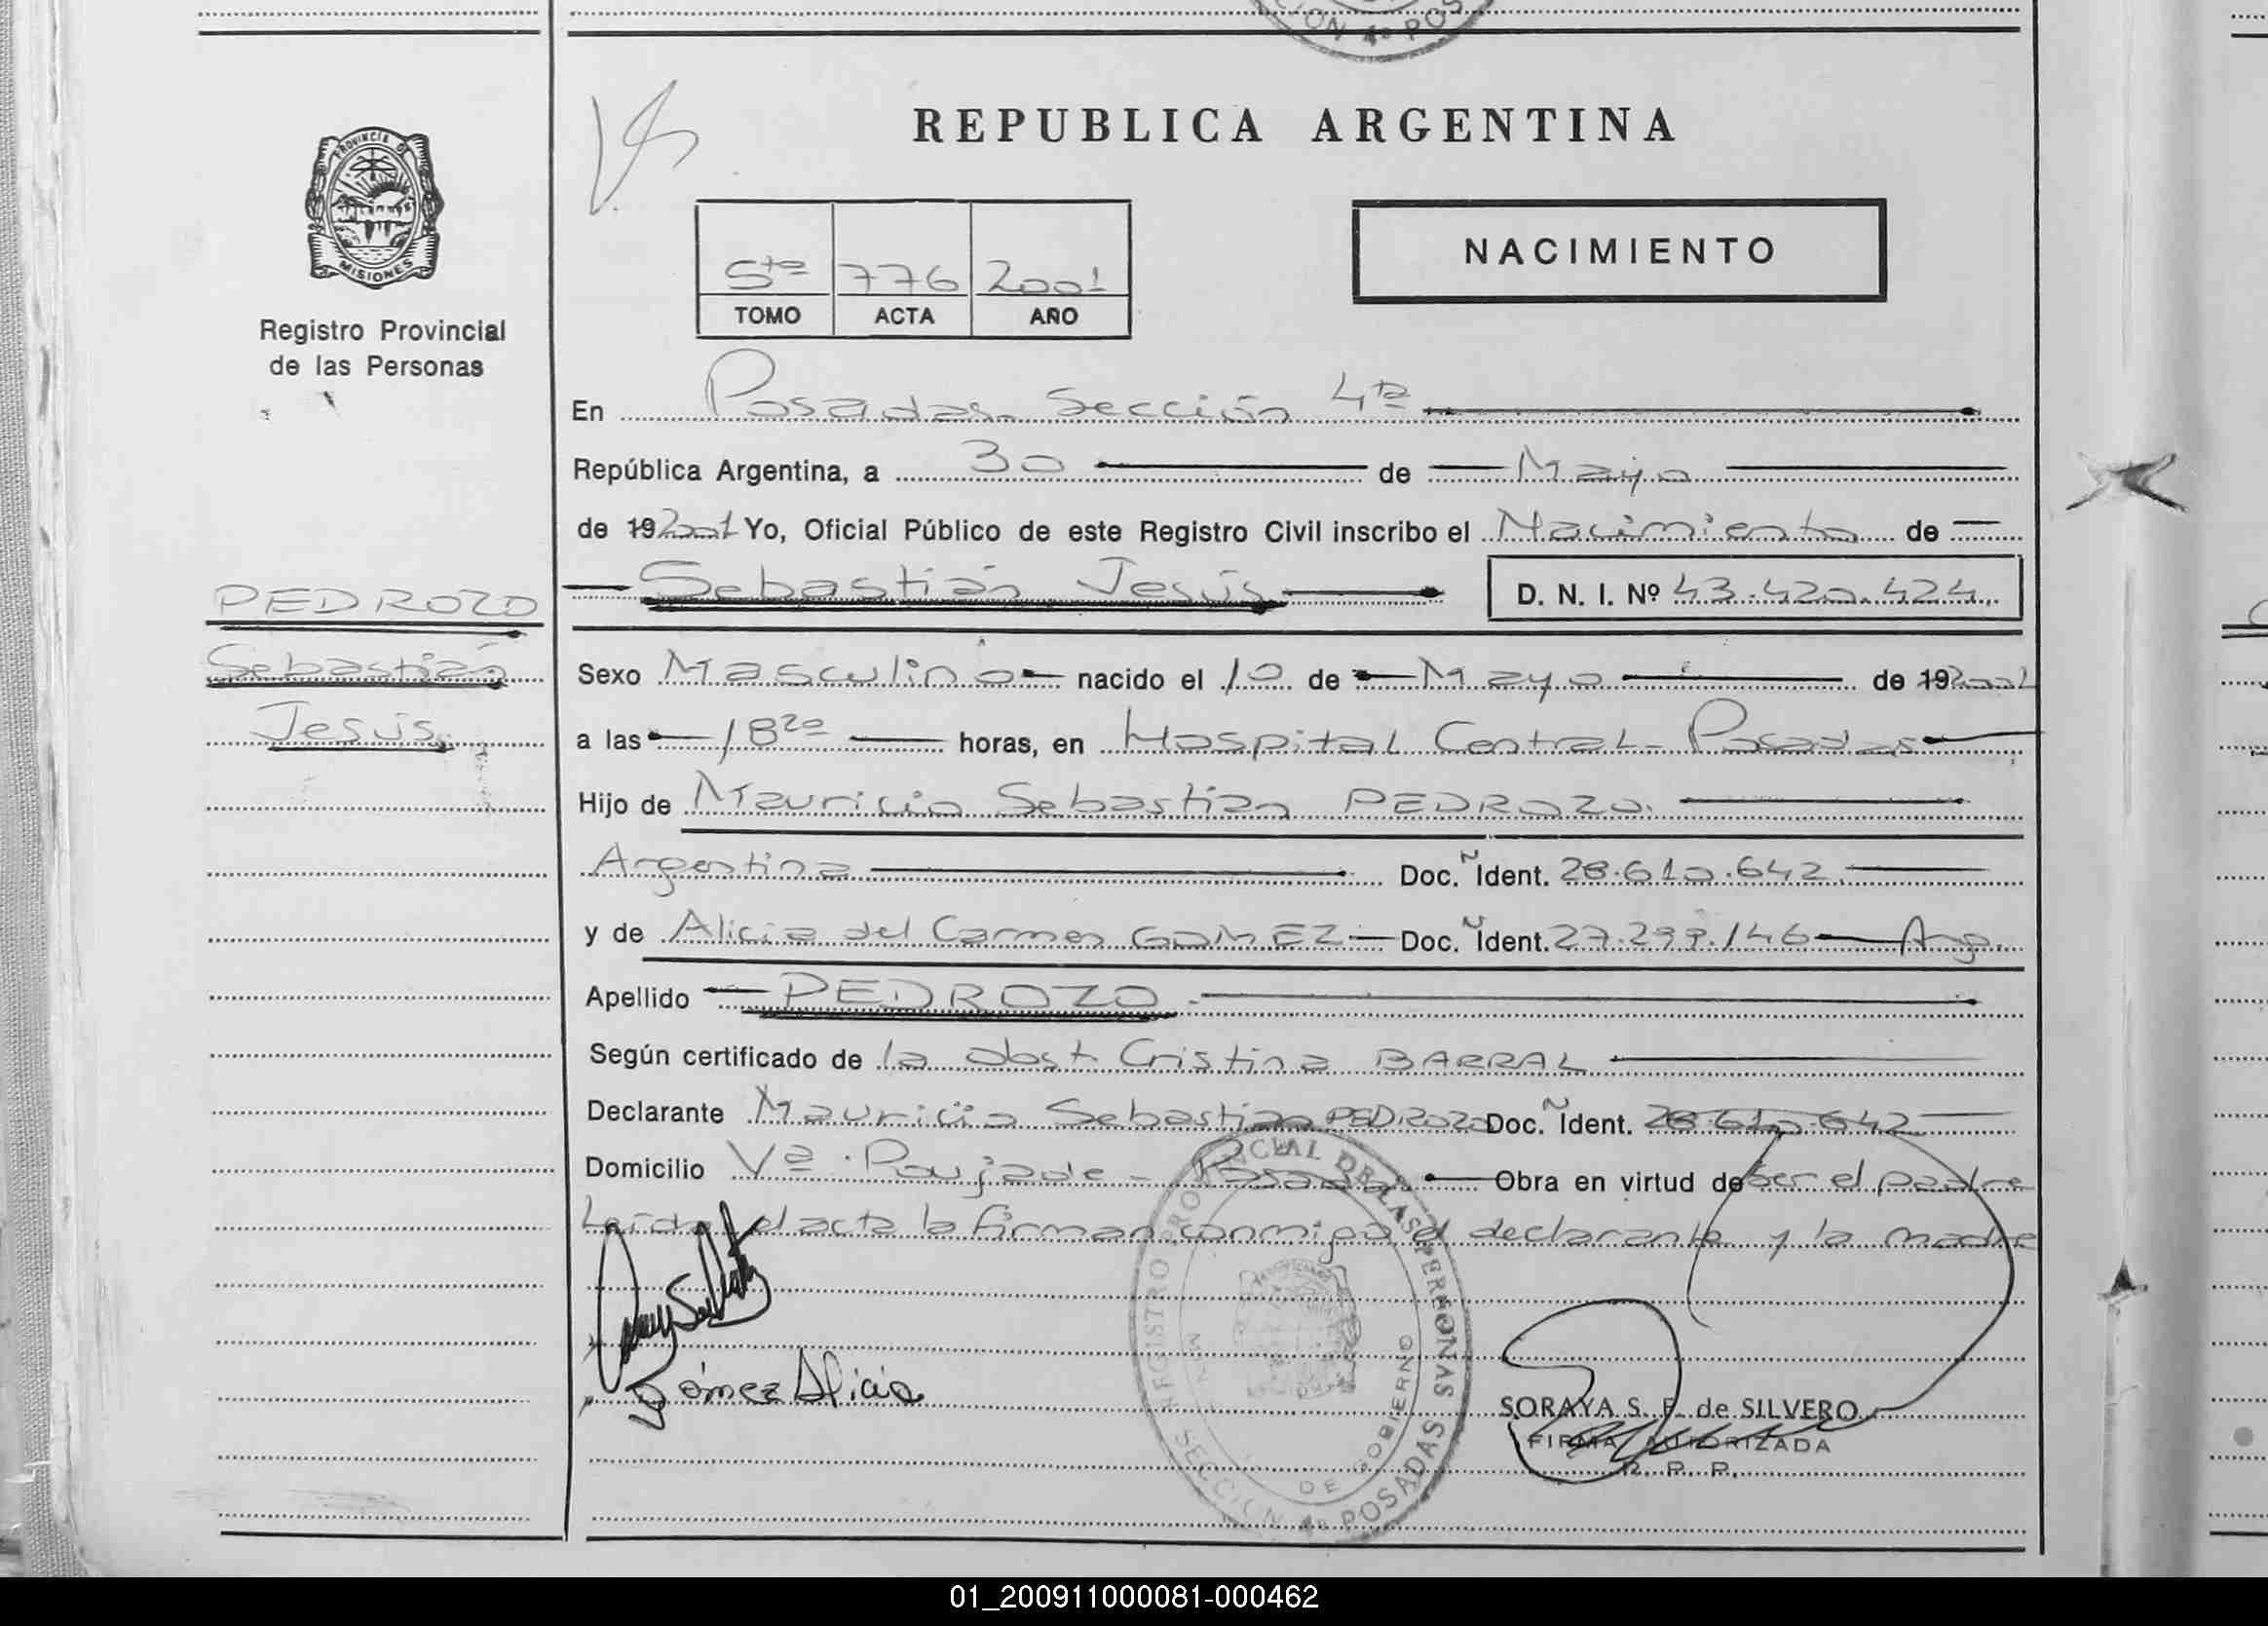 CION 4º POS
REPUBLICA ARGENTINA
PROVINCIA D
MISIONES
Registro Provincial
de las Personas
NACIMIENTO
5to 776 2001
TOMO ACTA AÑO
En Posadas Sección 4ta
República Argentina, a 30 de Mayo
de 19 2001 Yo, Oficial Público de este Registro Civil inscribo el Nacimiento de
Sebastián Jesús D. N. I. Nº 43.420.424
PEDROZO
Sebastián
Jesús
Sexo Masculino nacido el 10 de Mayo de 19 2001
a las 18 20 horas, en Hospital Central - Posadas
Hijo de Mauricio Sebastian PEDROZO.
Argentina Doc. Ident. 28.610.642.
y de Alicia del Carmen GOMEZ Doc. Ident. 27.299.146 Arg.
Apellido PEDROZO
Según certificado de la obst. Cristina BARRAL
Declarante Mauricio Sebastian PEDROZO Doc. Ident. 28.610.642
Domicilio Vª. Poujade - Posadas Obra en virtud de ser el padre
Leída el acta la firman conmigo el declarante y la madre
Gómez Alicia
REGISTRO PROVINCIAL DE LAS PERSONAS
DE GOBIERNO
SECCION 4º POSADAS
SORAYA S. F. de SILVERO
FIRMA AUTORIZADA
R. P. P.
01_200911000081-000462